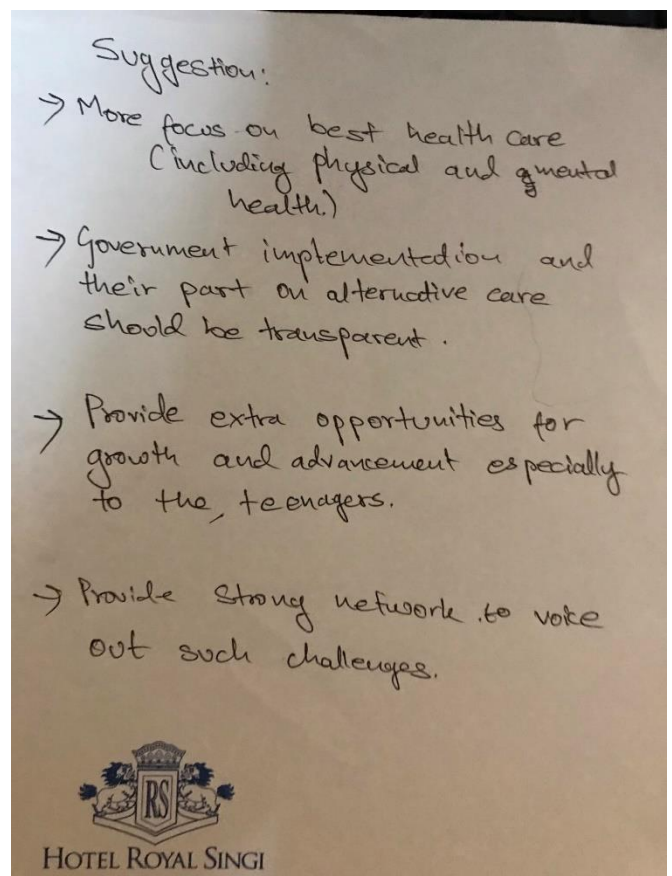 Suggestion:
→ More focus on best health care
(including physical and mental
health.)
→ Government implementation and
their part on alternative care
should be transparent.
→ Provide extra opportunities for
growth and advancement especially
to the, teenagers.
→ Provide strong network to voice
out such challenges.
RS
HOTEL ROYAL SINGI